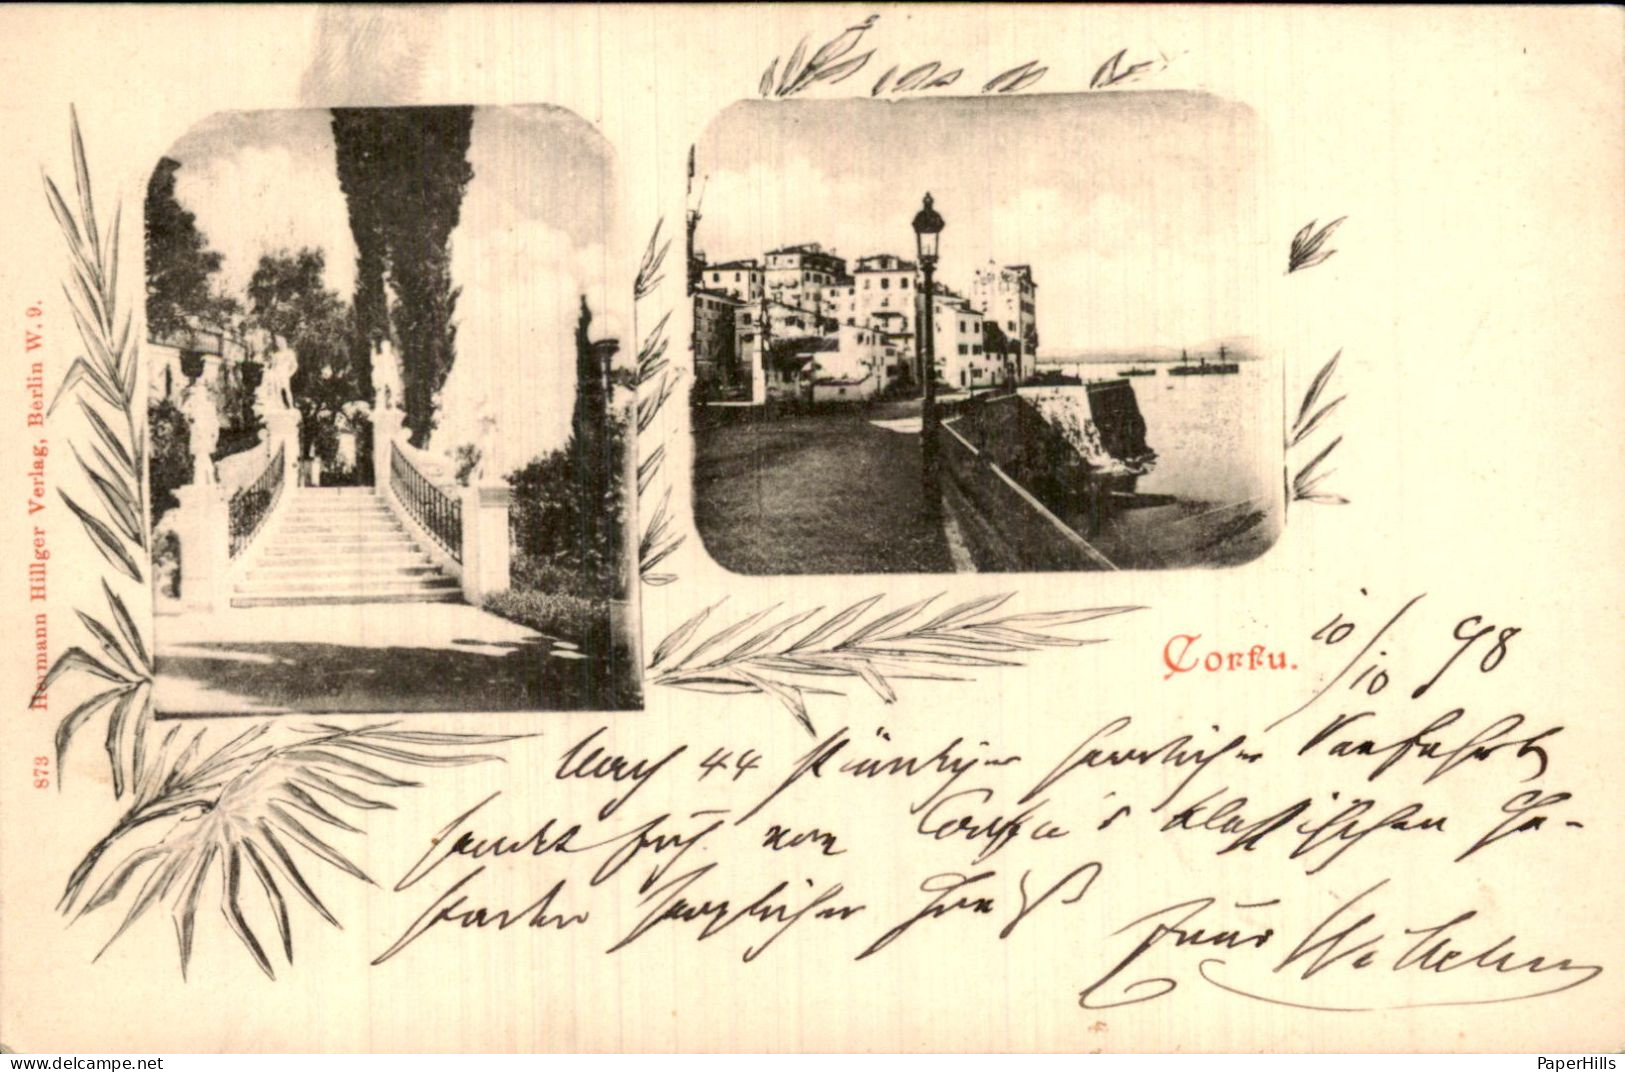 873 Hermann Hillger Verlag, Berlin W. 9.
Corfu.
10/10 98
Nach 44 stündiger herrlicher Seefahrt
sendet Euch von Corfu's klassischen Ge-
staden herzlichen Gruß
Euer Wilhelm
PaperHills